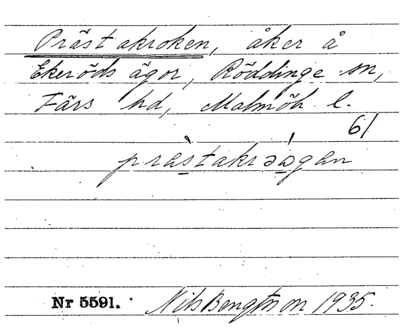 Prästakroken, åker å
Ekeröds ägor, Röddinge sn,
Färs hd, Malmöh. l.
61
pràstakrəágan
Nr 5591. Nils Bengtsson 1935.